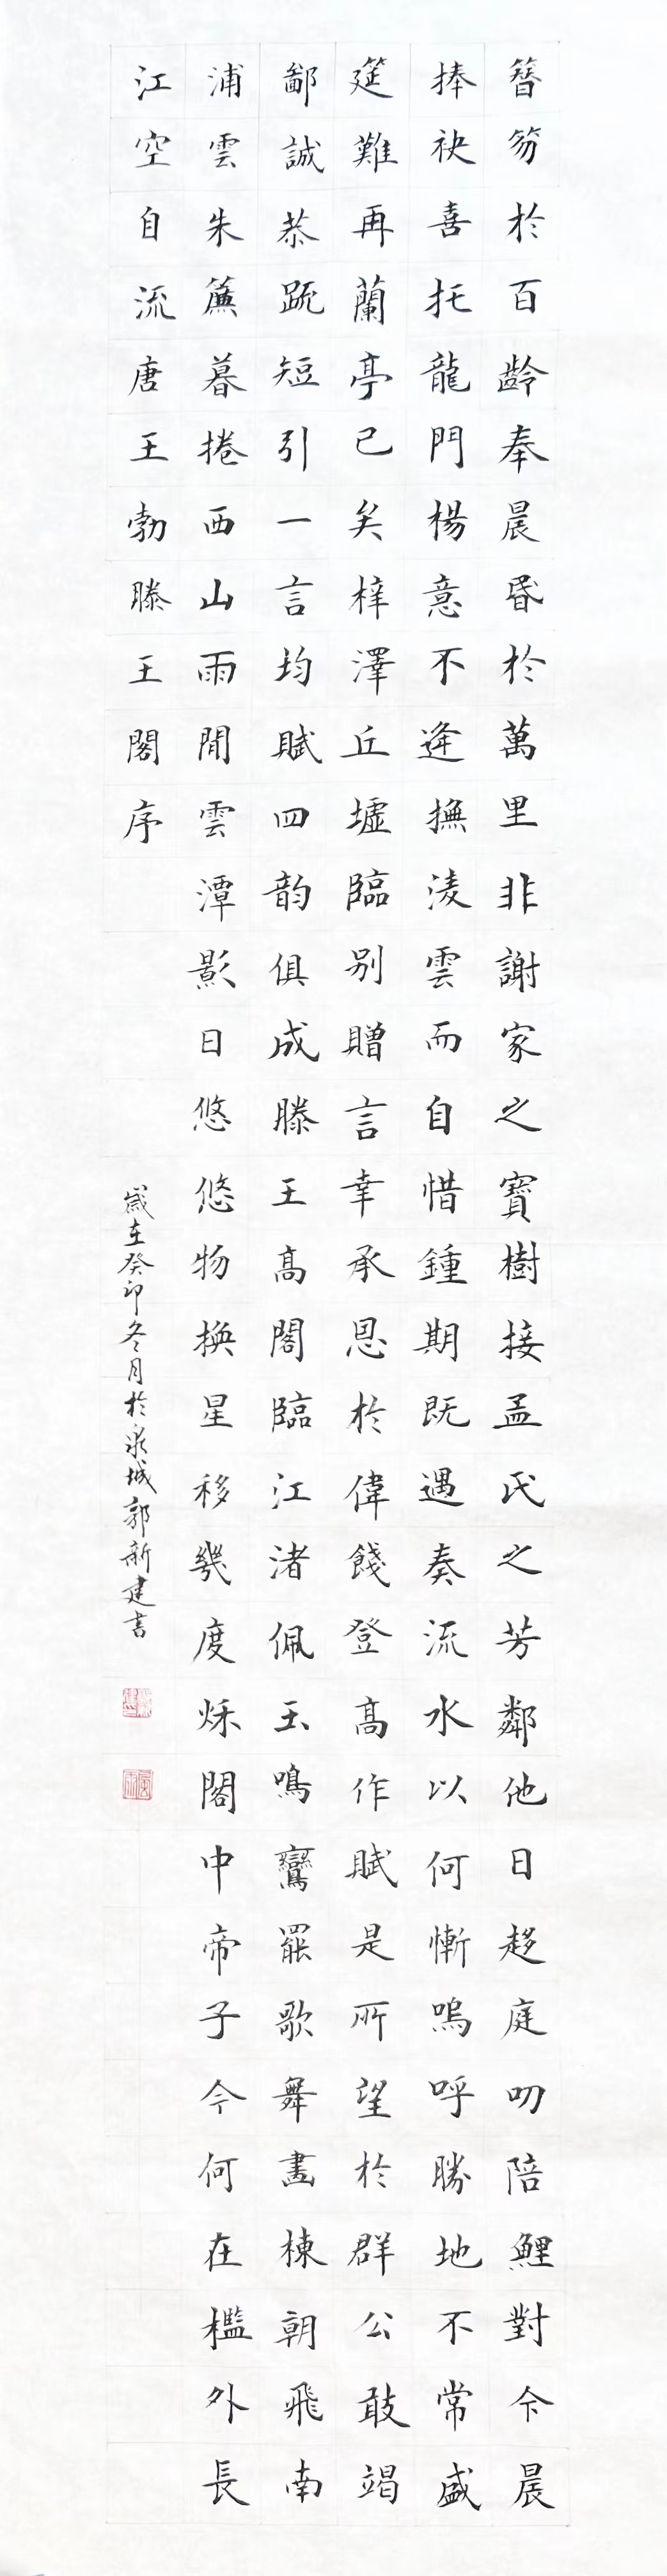 簪笏於百齡奉晨昏於萬里非謝家之寶樹接孟氏之芳鄰他日趍庭叨陪鯉對今晨
捧袂喜托龍門楊意不逢撫淩雲而自惜鍾期既遇奏流水以何慚嗚呼勝地不常盛
筵難再蘭亭已矣梓澤丘墟臨別贈言幸承恩於偉餞登高作賦是所望於群公敢竭
鄙誠恭疏短引一言均賦四韵俱成滕王高閣臨江渚佩玉鳴鸞罷歌舞畫棟朝飛南
浦雲朱簾暮捲西山雨閒雲潭影日悠悠物換星移幾度秌閣中帝子今何在檻外長
江空自流唐王勃滕王閣序
歲在癸卯冬月於泉城郭新建書